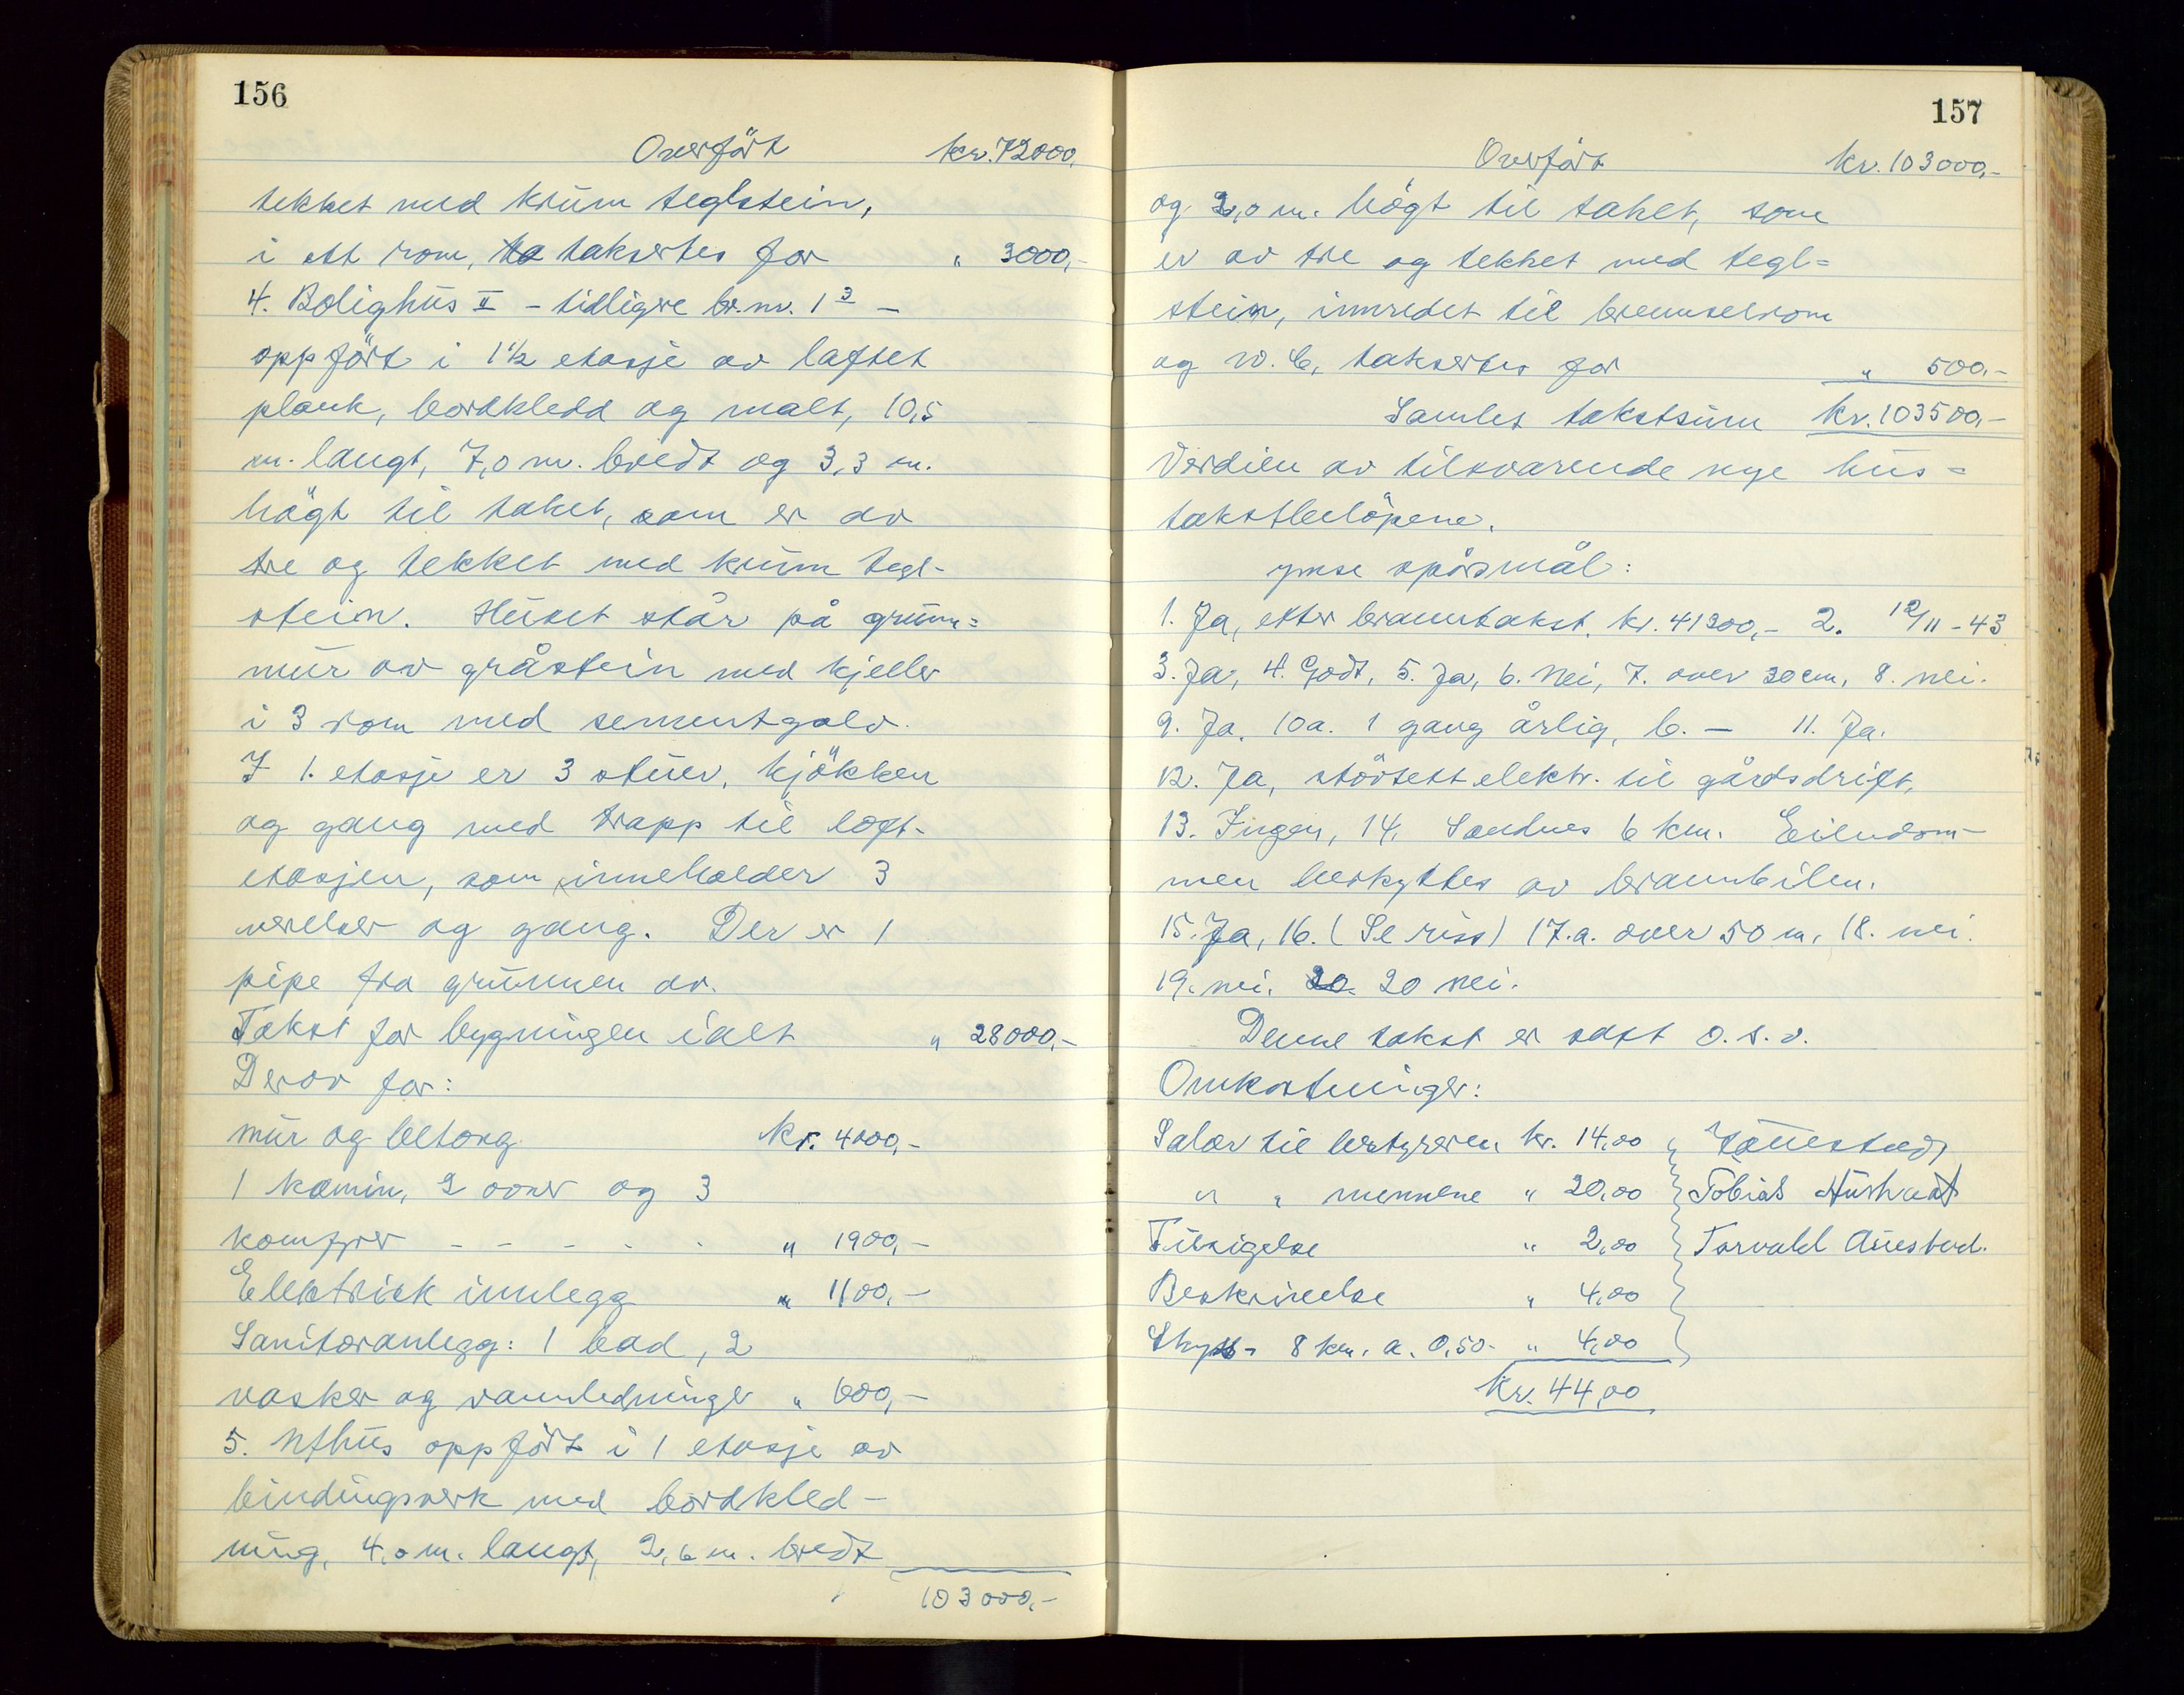 156
Overfört kr. 72000,
tekket med krum teglstein,
i ett rom, ta taksertes for " 3000,-
4. Bolighus II - tidligere br.nr. 1³ -
oppfört i 1½ etasje av laftet
plank, bordkledd og malt, 10,5
m. langt, 7,0 m. bredt og 3,3 m.
högt til taket, som er av
tre og tekket med krum tegl-
stein. Huset står på grunn=
mur av gråstein med kjeller
i 3 rom med sementgolv.
I 1. etasje er 3 stuer, kjökken
og gang med trapp til loft-
etasjen, som inneholder 3
værelser og gang. Der er 1
pipe fra grunnen av.
Takst for bygningen ialt " 28000,-
Derav for:
mur og betong kr. 4000,-
1 kamin, 2 ovner og 3
komfyrer - - - - - " 1900,-
Elektrisk innlegg " 1100,-
Sanitæranlegg: 1 bad, 2
vasker og vannledninger " 600,-
5. Uthus oppfört i 1 etasje av
bindingsverk med bordkled-
ning, 4,0 m. langt, 2,6 m. bredt
103000,-
157
Overfört kr. 103000,-
og 2,0 m. högt til taket, som
er av tre og tekket med tegl=
stein, innredet til brenselrom
og W.C., taksertes for " 500,-
Samlet takstsum kr. 103500,-
Verdien av tilsvarende nye hus=
takstbelöpene.
ymse spörsmål:
1. Ja, etter branntakst. kr. 41300,- 2. 12/11-43
3. Ja, 4. Godt, 5. Ja, 6. Nei, 7. over 30 cm, 8. nei.
9. Ja. 10a. 1 gang årlig, b. - 11. Ja.
12. Ja, störsett elektr. til gårdsdrift,
13. Ingen, 14. Sandnes 6 km. Eiendom-
men beskyttes av brannbilen.
15. Ja, 16. (Se riss) 17.a. over 50 m, 18. nei.
19. nei. 20. 20 nei.
Denne takst er satt o.s.v.
Omkostninger:
Salær til bestyreren kr. 14,00
" " mennene " 20,00 Tobias
Tilsigelse " 2,00 Torvald Auestad.
Beskrivelse " 4,00
Skyss - 8 km. a. 0,50 - " 4,00
kr. 44,00